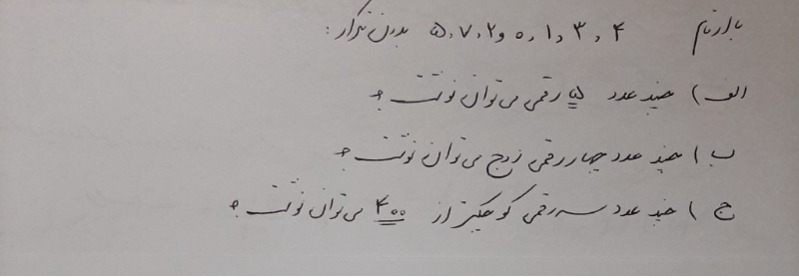 با ارقام ۴ , ۳ , ۱ , ۰ و ۲ , ۷ , ۵ بدون تکرار :
الف ) چند عدد ۵ رقمی می توان نوشت ؟
ب ) چند عدد چهار رقمی زوج می توان نوشت ؟
ج ) چند عدد سه رقمی کوچکتر از ۴۰۰ می توان نوشت ؟